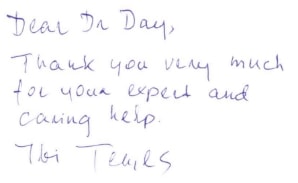 Dear Dr Day,
Thank you very much
for your expert and
caring help.